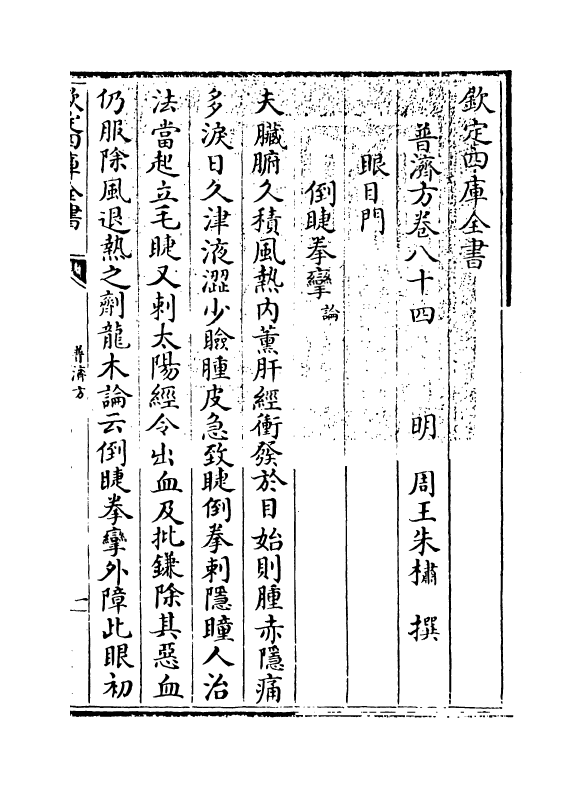 欽定四庫全書
普濟方卷八十四　明　周王朱橚　撰
眼目門
倒睫拳攣論
夫臟腑久積風熱内薰肝經衝發於目始則腫赤隱痛
多淚日久津液澀少瞼腫皮急致睫倒拳刺隱瞳人治
法當起立毛睫又刺太陽經令出血及批鎌除其惡血
仍服除風退熱之劑龍木論云倒睫拳攣外障此眼初
欽定四庫全書
普濟方
一